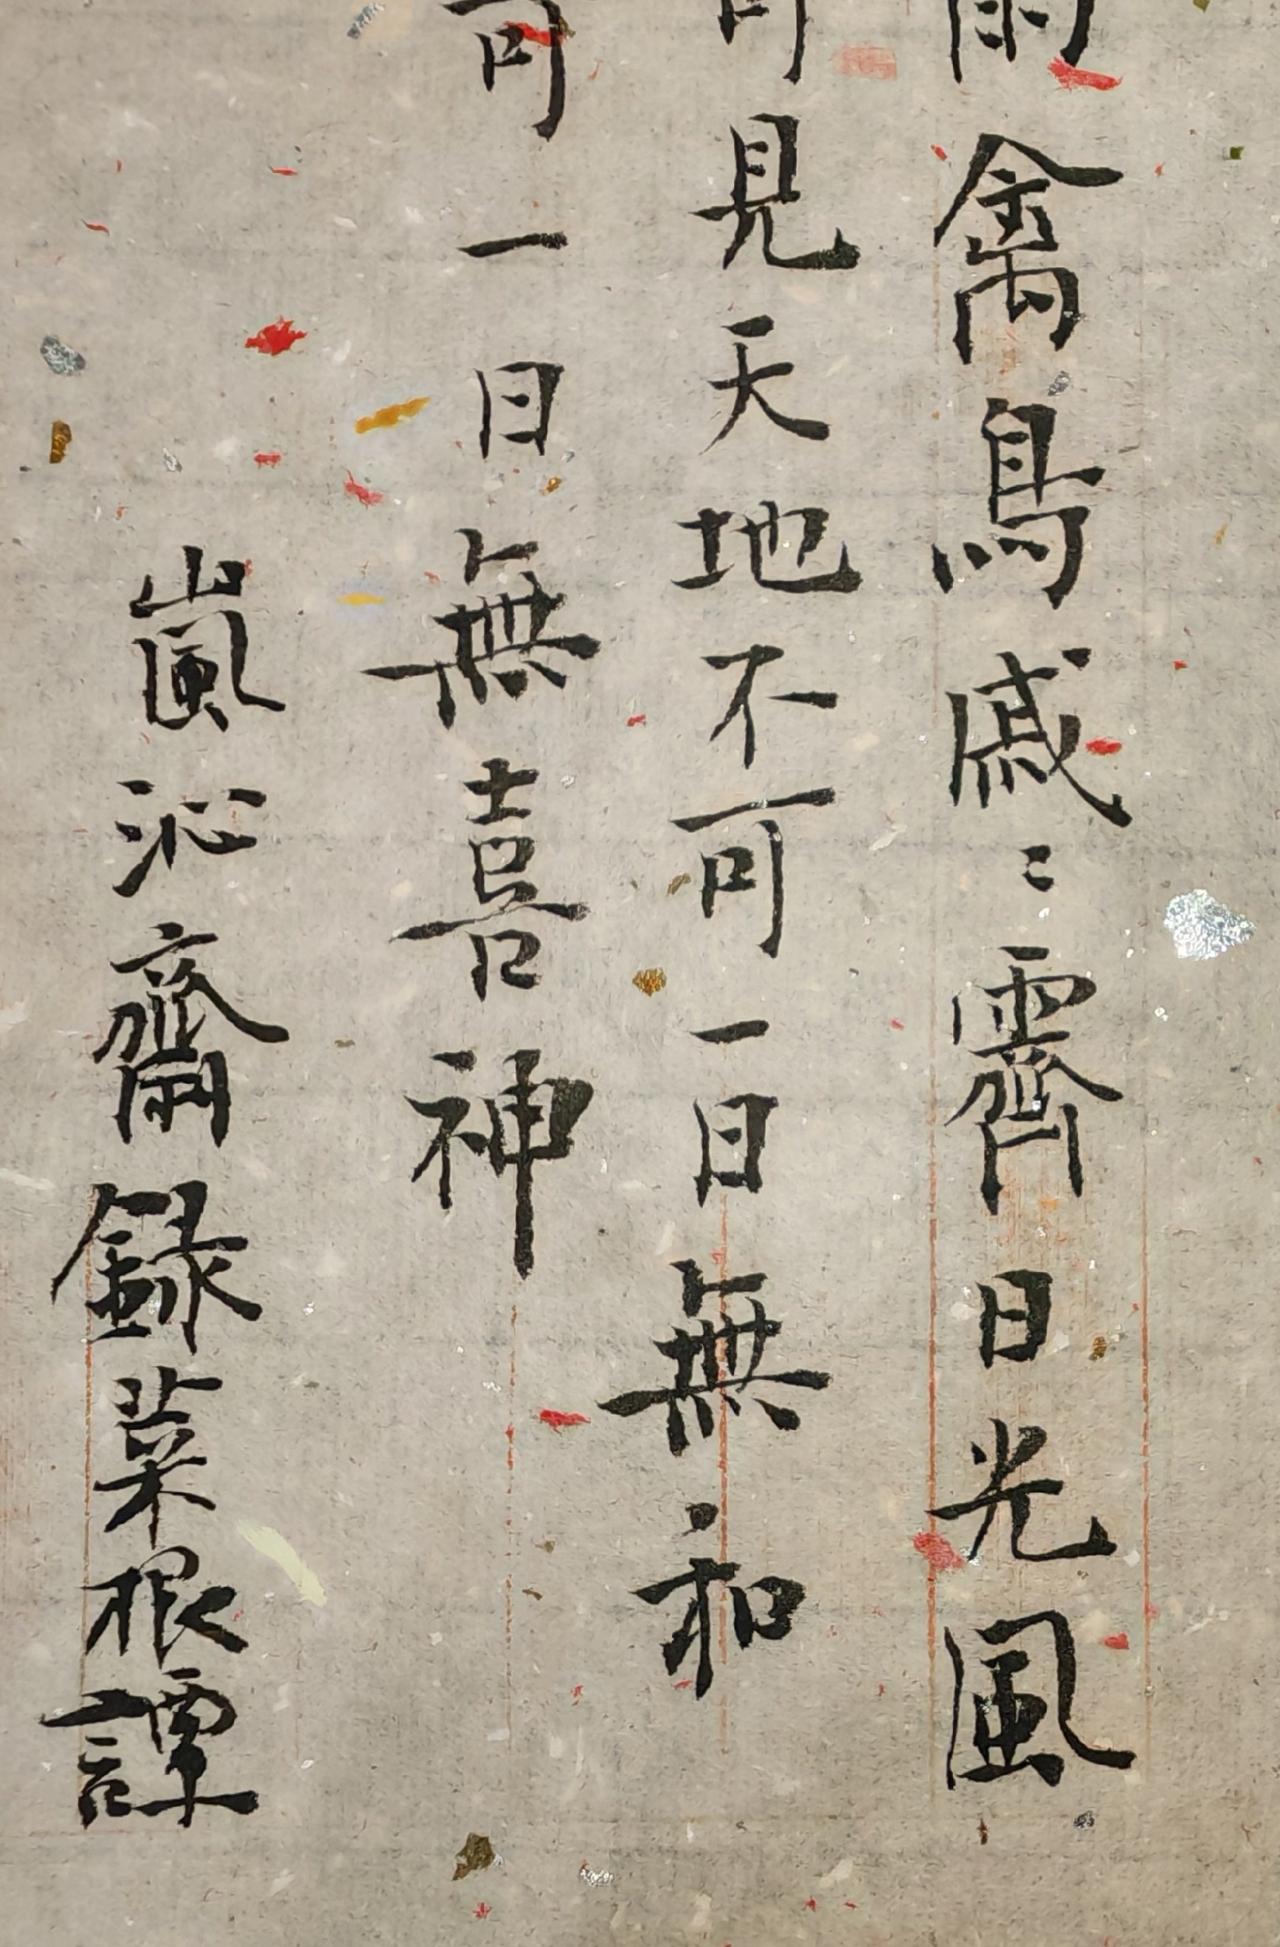 雨禽鳥戚〻霽日光風
可見天地不可一日無和
可一日無喜神
嵐沁齋錄菜根譚